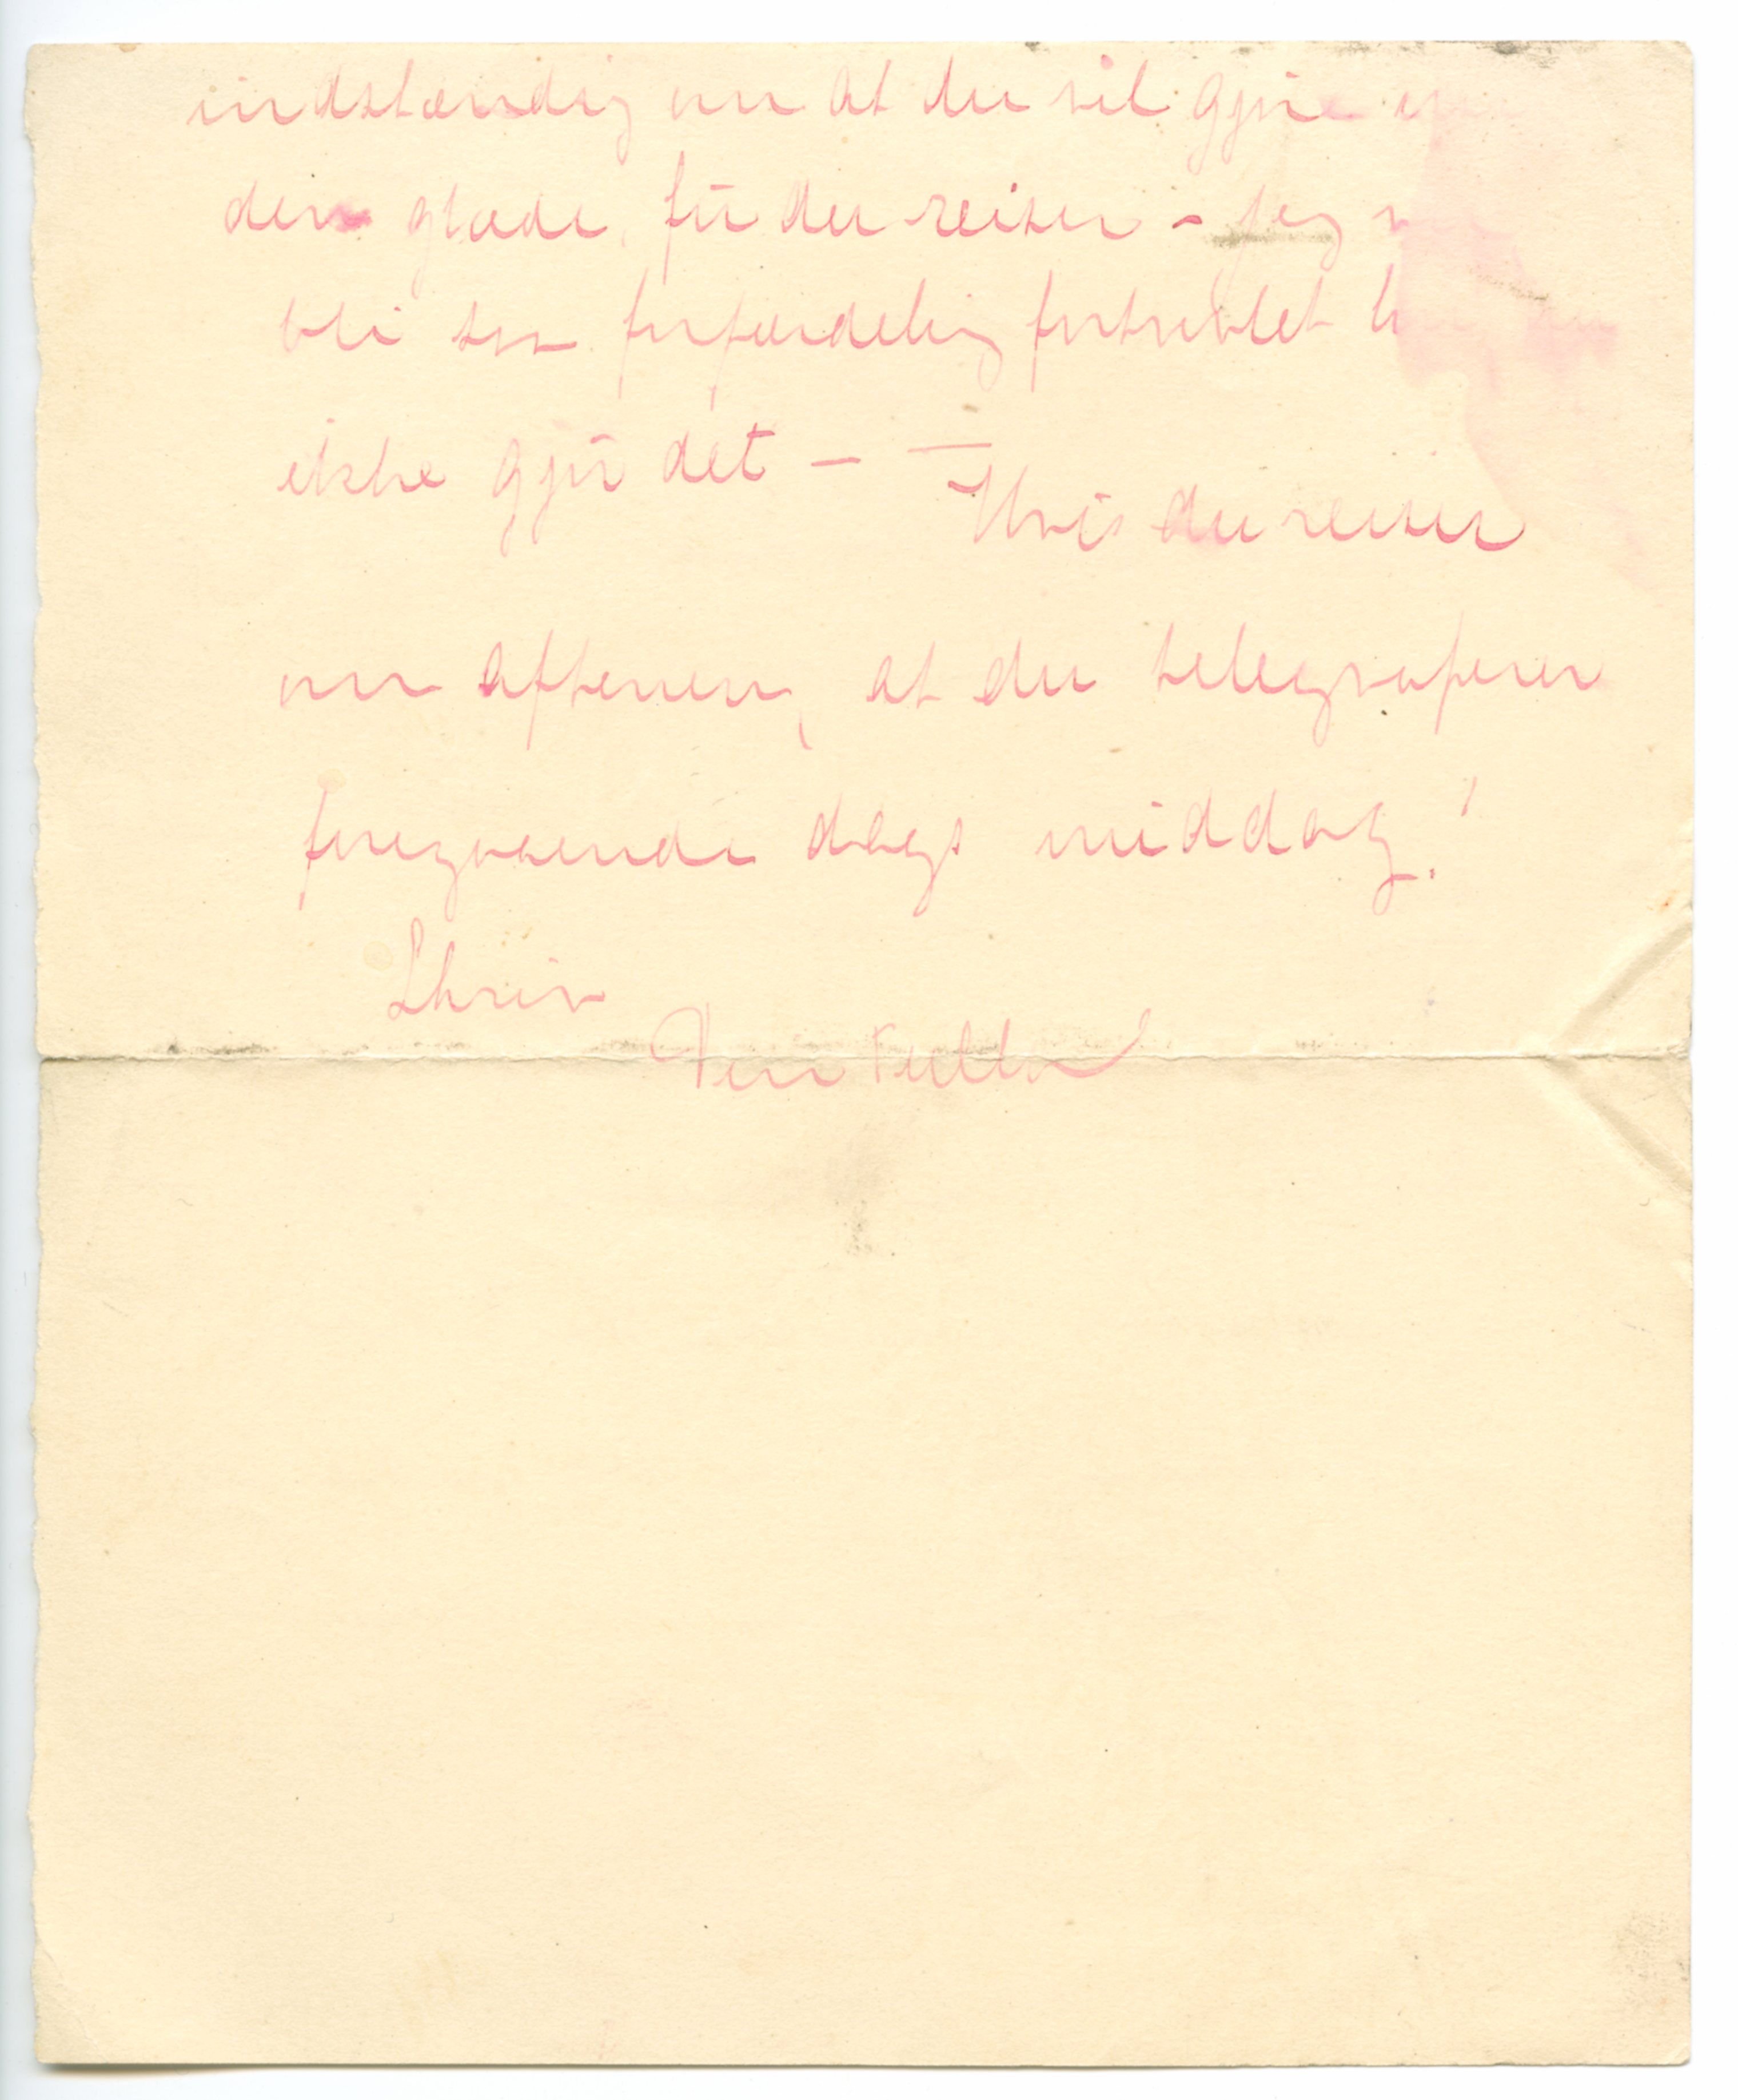 indstændig om at du vil gjøre
den glæde, før du reiser – Jeg
bli saa forfærdelig fortvilet
ikke gjør det – —
Hvis du reiser
om aftenen, at du telegraferer
foregaaende dags middag!
Skriv
Din Tulla